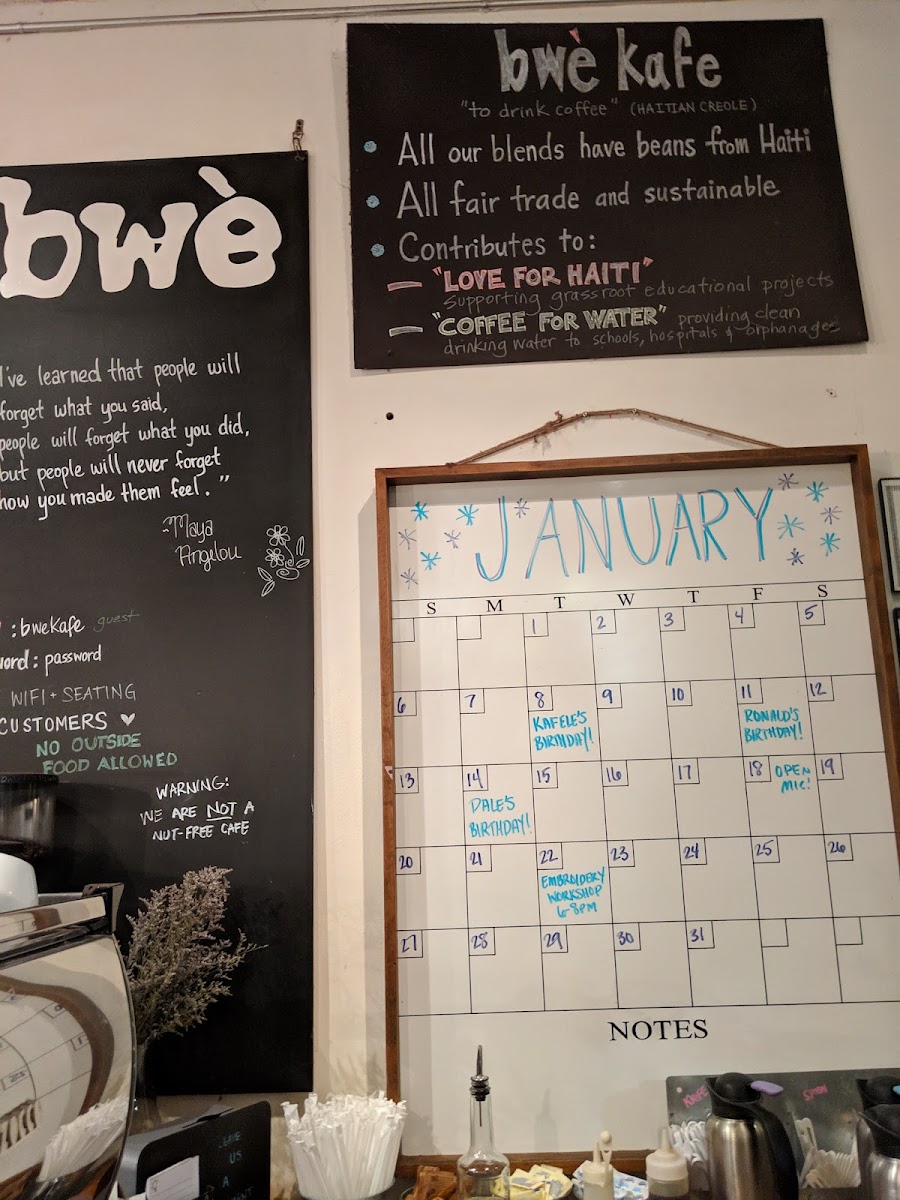 bwè kafe
"to drink coffee" (HAITIAN CREOLE)
All our blends have beans from Haiti
All fair trade and sustainable
Contributes to:
— "LOVE FOR HAITI"
supporting grassroot educational projects
— "COFFEE FOR WATER" providing clean
drinking water to schools, hospitals & orphanages
bwè
I've learned that people will
forget what you said,
people will forget what you did,
but people will never forget
how you made them feel."
~Maya
Angelou
: bwekafe guest
word: password
WIFI + SEATING
CUSTOMERS ♥
NO OUTSIDE
FOOD ALLOWED
WARNING:
WE ARE NOT A
NUT-FREE CAFE
JANUARY
S M T W T F S
1 2 3 4 5
6 7 8 9 10 11 12
KAFELE'S
BIRTHDAY!
RONALD'S
BIRTHDAY!
13 14 15 16 17 18 19
DALE'S
BIRTHDAY!
OPEN
MIC!
20 21 22 23 24 25 26
EMBROIDERY
WORKSHOP
6-8PM
27 28 29 30 31
NOTES
LEAVE
US
A